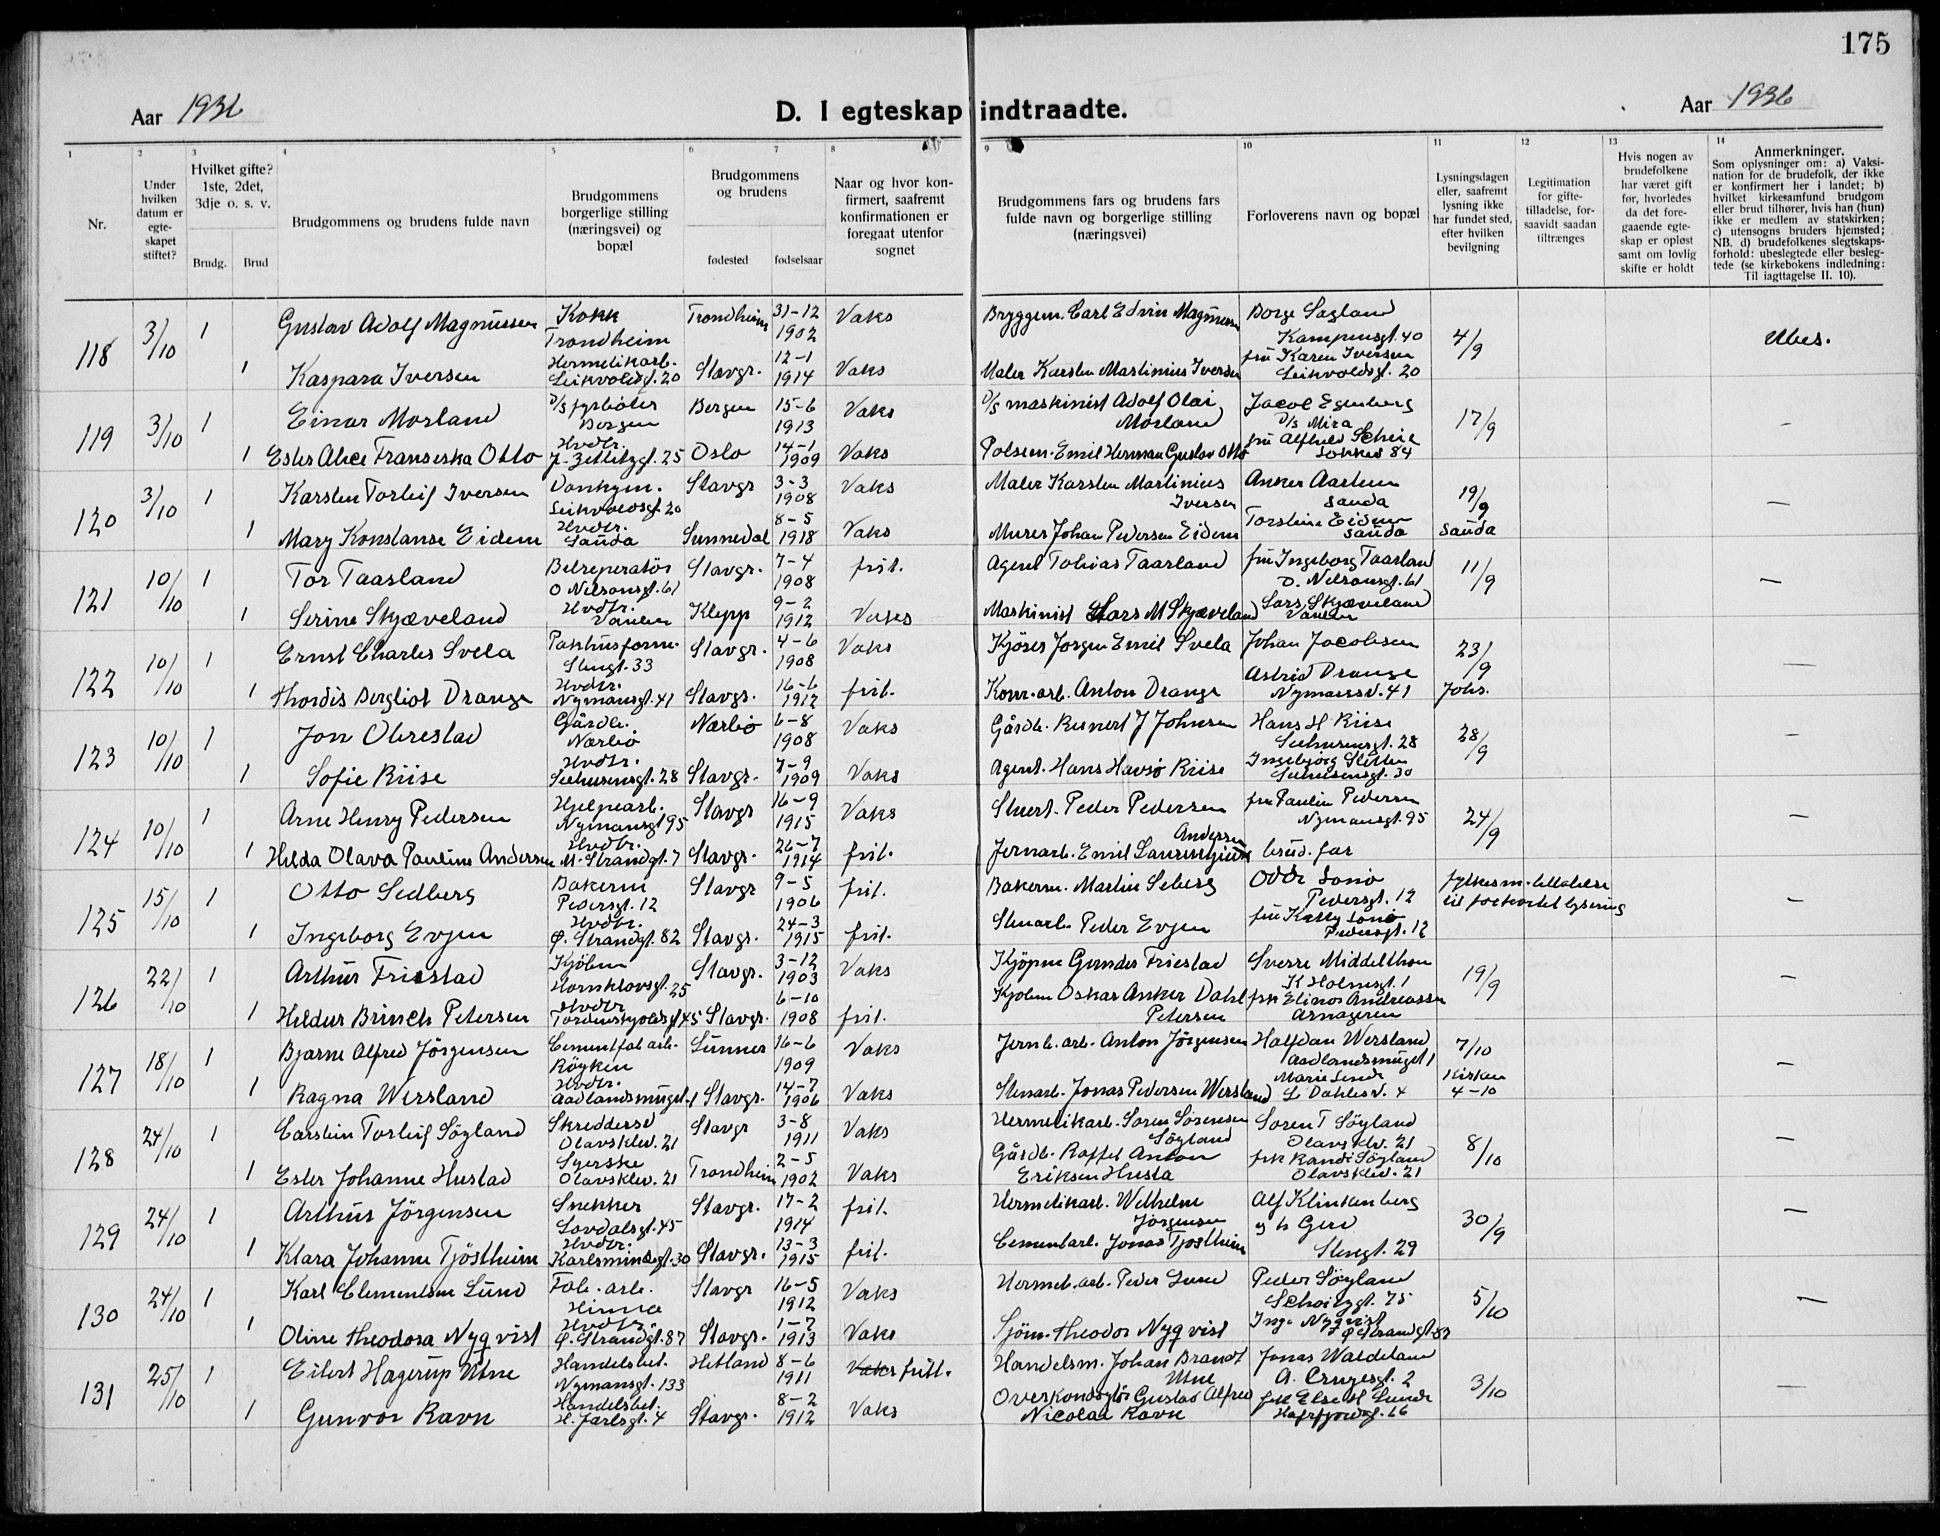 175
Aar 1936
D. I egteskap indtraadte.
Aar 1936
1 2 3 4 5 6 7 8 9 10 11 12 13 14
Nr.
Under hvilken datum er egte-skapet stiftet?
Hvilket gifte? 1ste, 2det, 3dje o. s. v.
Brudg. Brud
Brudgommens og brudens fulde navn
Brudgommens borgerlige stilling (næringsvei) og bopæl
Brudgommens og brudens
fødested fødselsaar
Naar og hvor kon-firmert, saafremt konfirmationen er foregaat utenfor sognet
Brudgommens fars og brudens fars fulde navn og borgerlige stilling (næringsvei)
Forloverens navn og bopæl
Lysningsdagen eller, saafremt lysning ikke har fundet sted, efter hvilken bevilgning
Legitimation for gifte-tilladelse, for-saavidt saadan tiltrænges
Hvis nogen av brudefolkene har været gift før, hvorledes da det fore-gaaende egte-skap er opløst samt om lovlig skifte er holdt
Anmerkninger.
Som oplysninger om: a) Vaksi-nation for de brudefolk, der ikke er konfirmert her i landet; b) hvilket kirkesamfund brudgom eller brud tilhører, hvis han (hun) ikke er medlem av statskirken; c) utensogns bruders hjemsted; NB. d) brudefolkenes slegtskaps-forhold: ubeslegtede eller besleg-tede (se kirkebokens indledning: Til iagttagelse II. 10).
118 3/10 1 Gustav Adolf Magnussen Kokk Trondheim Trondheim 31-12 1902 Vaks Bryggem. Carl Edvin Magnussen Borge Sagland Kampensgt. 40 4/9 Ubes.
1 Kaspara Iversen Hermetikarb. Leikvoldsgt. 20 Stavgr. 12-1 1914 Vaks Maler Karsten Martinius Iversen fru Karen Iversen Leikvoldsgt. 20
119 3/10 1 Einar Morland D/s fyrbøter Bergen Bergen 15-6 1913 Vaks D/s maskinist Adolf Olai Morland Jacob Egenberg D/s Mira 17/9 -
1 Ester Alice Franseska Otto Hvdtr. J. Zetlitzgt. 25 Oslo 14-1 1909 Vaks Pølsem. Emil Herman Gustav Otto fru Alfhild Schie Løkkev 84
120 3/10 1 Karsten Torleif Iversen Leikvoldsgt. 20 Stavgr 3-3 1908 Vaks Maler Karsten Martinius Iversen Anker Aarhun Sauda 19/9 -
1 Mary Konstanse Eidem Hvdtr. Sauda Sunnedal 8-5 1918 Vaks Murer Johan Pedersen Eidem Torstein Eidem Sauda Sauda
121 10/10 1 Tor Taarland Belreperatør O Nilsonsgt. 61 Stavgr. 7-4 1908 frit. Agent Tobias Taarland fru Ingeborg Taarland O. Nilsonsgt. 61 11/9 -
1 Serine Skjæveland Hvdtr. Vaulen Klepp 9-2 1912 Vaks Maskinist Lars M Skjæveland Lars Skjæveland Vaulen
122 10/10 1 Ernst Charles Svela Pakhusform. Stengt. 33 Stavgr. 4-6 1908 Vaks Kjører Jørgen Emil Svela Johan Jacobsen 23/9 -
1 Thordis Bergliot Drange Hvdtr. Nymansgt. 41 Stavgr. 16-6 1912 frit. Konv. arb. Anton Drange Astrid Drange Nymansv. 41 Johs.
123 10/10 1 Jon Obrestad Gårdb. Nærbø Nærbø 6-8 1908 Vaks Gårdb. Reinert J Johnsen Hans H Riise Seehusensgt. 28 28/9 -
1 Sofie Riise Hvdtr. Seehusensgt. 28 Stavgr. 7-9 1909 Vaks Agent. Hans Havsø Riise Ingebjørg Sletten Seehusensgt. 30
124 10/10 1 Arne Henry Pedersen Hjelpearb. Nymansgt 95 Stavgr 16-9 1915 Vaks Stuert. Peder Pedersen fru Paulin Pedersen Nymansgt. 95 24/9 -
1 Hilda Olava Pauline Andersen Hvdtr. M. Strandgt. 7 Stavgr. 26-7 1914 frit. Jernarb. Emil Andersen brud. far
125 15/10 1 Otto Sedberg Bakerm Pedersgt. 12 Stavgr 9-5 1906 frit. Bakerm. Martin Seberg Oddv Sonø Pedersgt. 12 fylkesm. tillatelse til forkortet lysning -
1 Ingeborg Evjen Hvdtr. Ø. Strandgt. 82 Stavgr. 24-3 1915 frit. Stuearb. Peder Evjen fru Kitty Sonø Pedersgt. 12
126 22/10 1 Arthur Friestad Kjøbm Hornklovsgt. 25 Stavgr. 3-12 1903 Vaks Kjøpm Gunder Friestad Sverre Middelthon K Holmsgt. 1 19/9 -
1 Hildur Brinch Petersen Hvdtr Tordenskjoldsgt 45 Stavgr. 6-10 1908 frit. Kjøbm Oskar Anker Dahl Petersen frk Elinor Andreassen Arnageren
127 18/10 1 Bjarne Alfred Jörgensen Cementfab arb. Röyken Lunner 16-6 1909 Vaks Jernb. arb. Anton Jörgensen Halfdan Wersland Aadlandsmuget 1 7/10 -
1 Ragna Wersland Hvdtr. Aadlandsmuget. 1 Stavgr. 14-7 1906 Vaks Stenarb. Jonas Pedersen Wersland Marie Lende L Dahlesv. 4 Kirken 4-10
128 24/10 1 Carstein Torleif Söyland Skreddersv Olavsklev. 21 Stavgr 3-8 1911 Vaks Hermetikarb. Soren Sørensen Söyland Soren T Söyland Olavsklv. 21 8/10 -
1 Ester Johanne Hustad Syerske Olavsklev. 21 Trondheim 2-5 1902 Vaks Gårdb. Roffel Anton Eriksen Husta frk Randi Söyland Olavsklev. 21
129 24/10 1 Arthur Jörgensen Snekker Lovdalsgt. 45 Stavgr. 17-2 1914 frit. Hermetikarb. Wilhelm Jørgensen Alf Klinkenberg 30/9 -
1 Klara Johanne Tjöstheim Hvdtr. Karlsminnegt. 30 Stavgr. 13-3 1915 frit. Cementarb. Jonas Tjøstheim og h Gerd Stengt. 29
130 24/10 1 Karl Clementsen Lund Fab. arb. Hinna Stavgr 16-5 1912 Vaks Hermet. arb. Peder Lund Peder Söyland Schoitzgt. 75 5/10 -
1 Oline Theodora Nyqvist Hvdtr. Ø. Strandgt. 87 Stavgr. 1-7 1913 Vaks Sjöm. Theodor Nyqvist Inga Nyqvist Ø Strandgt. 87
131 25/10 1 Eilert Hagerup Utne Handelsbet. Nymansgt. 133 Hetland 8-6 1911 Vaks fritt. Handelsm. Johan Brandt Utne Jonas Waldeland A. Crugesgt. 2 3/10
1 Gunvor Ravn Handelsbet. H. Jarlsgt. 4 Stavgr. 8-2 1912 Vaks Overkonduktör Gustav Alfred Nicolai Ravn frk Else M Lunde Hafrfjordsgt. 66